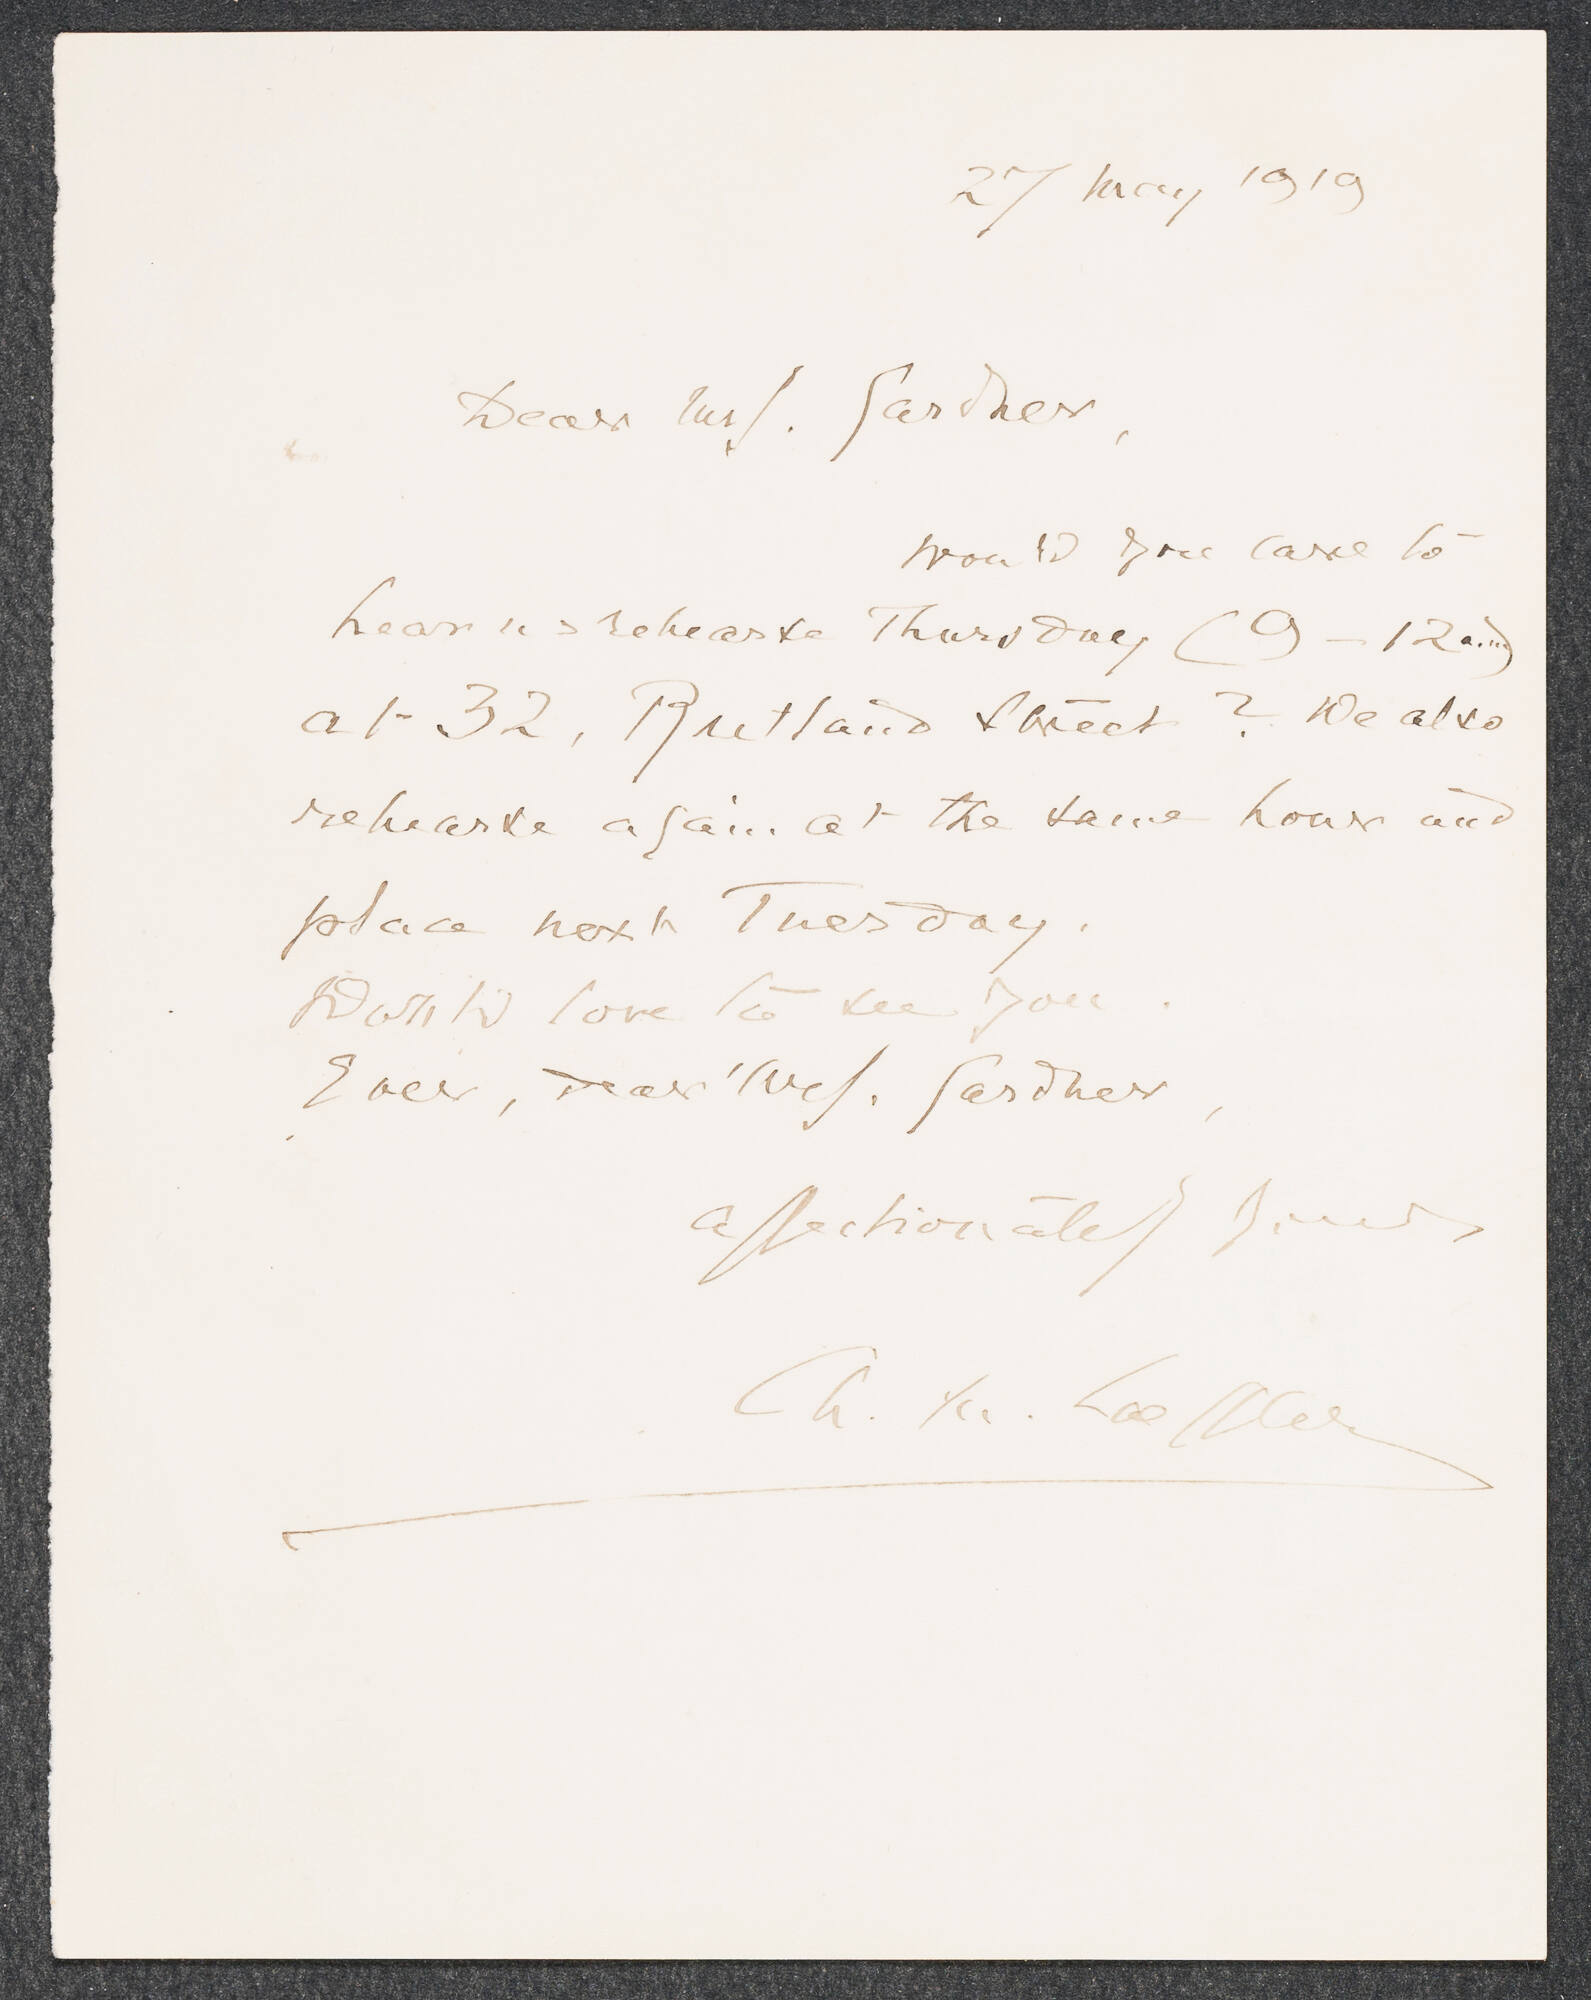 27 May 1919
Dear Mrs. Gardner,
would you care to
hear us rehearse Thursday (9 – 12 a.m)
at 32, Rutland Street? We also
rehearse again at the same hour and
place next Tuesday.
Would love to see you.
Ever, dear Mrs. Gardner,
affectionately yours
Ch. M. Loeffler